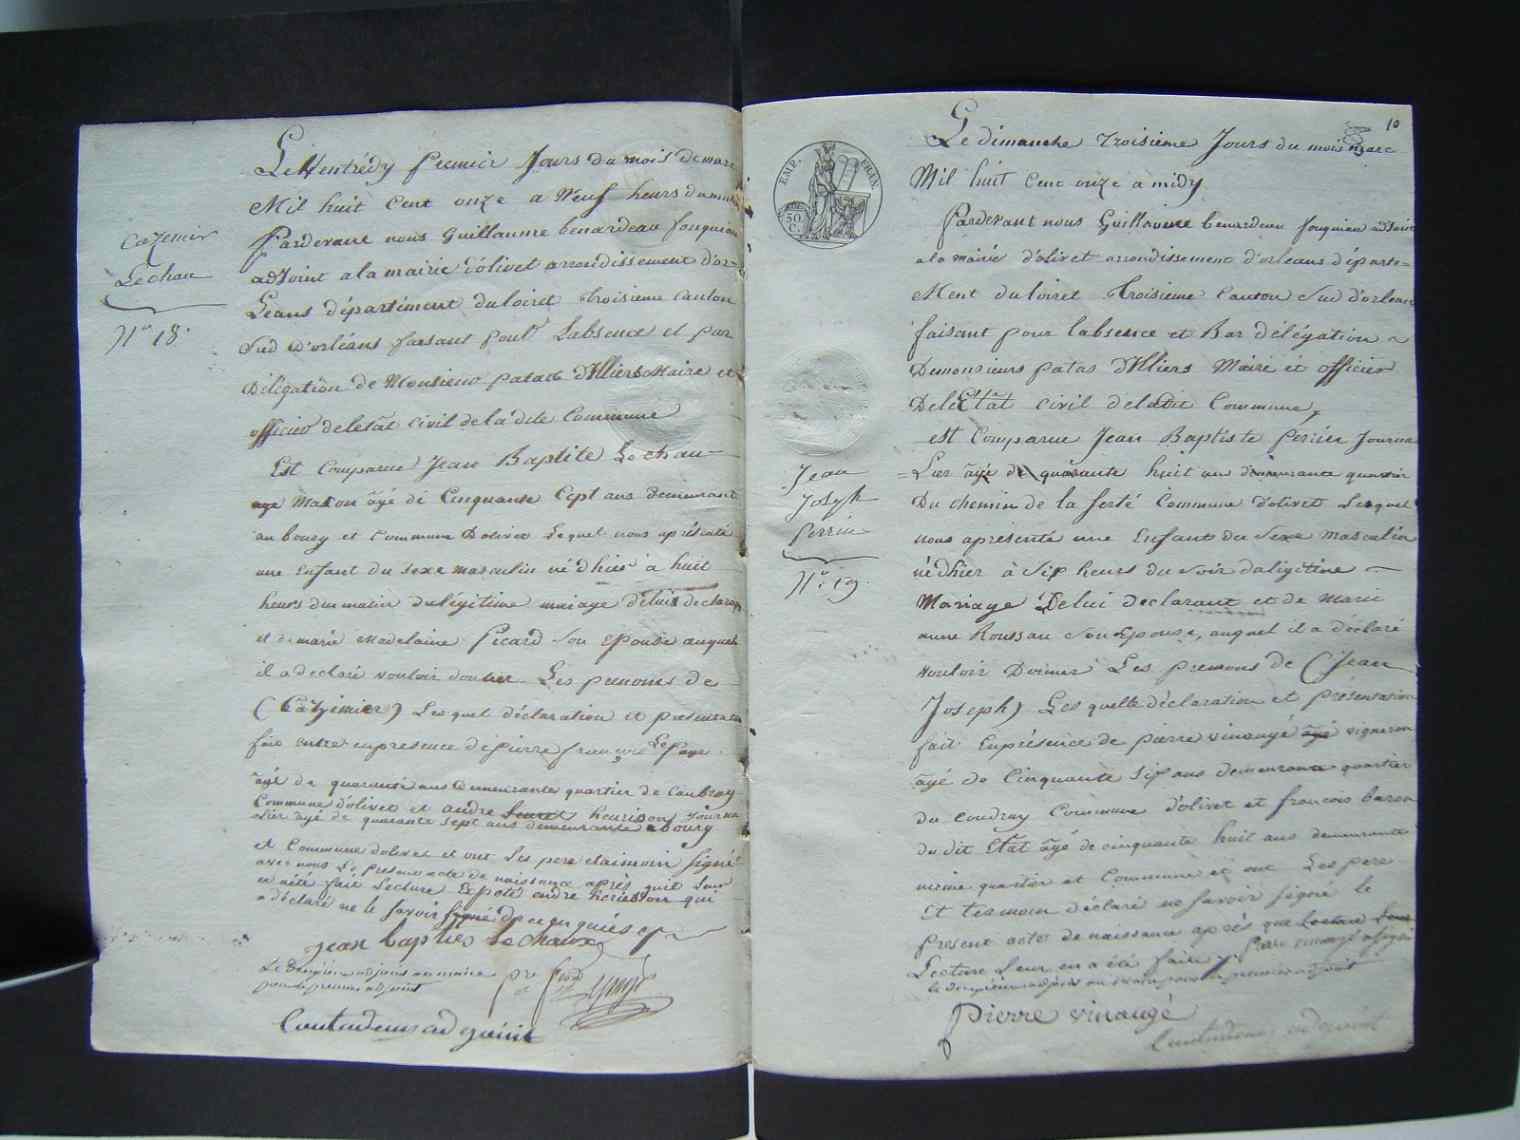 Cazemir
Lechau
N° 18.
Le Ventrédy premier Jours du mois de mars
Mil huit Cent onze a Neuf heurs du matin
Pardevant nous Guillaume benardeau fouquiau
adJoint a la mairie d'olivet arrondissement d'or=
Leans départément du loiret troisieme Canton
Sud d'orléans faisant pour Labsence et par
Déligation de Monsieur patas dIlliers Maire et
officier de létat civil de la dite Commune
Est Comparue Jean Baptiste Lechau
age Maxon âgé de Cinquante Cept ans demeurant
au bourg et Commune Dolivet Lequel nous aprésenté
une Enfant du Sexe masculin né d'hier à huit
heurs du matin du legitime mariage de lui declarant
et de marie Madelaine Picard Son Epouse auquel
il a declaré vouloir donner Les prenoms de
(Cazimier) Les quel déclaration et presentation
fait entre enpresence de pierre françois Le page
âgé de quarante ans demeurante quartier de Caubray
Commune d'olivet et andre henrison Journa
Lier âgé de quarante sept ans demeurante bourg
et Commune dolivet et ont Les pere etaimoin Signé
avec nous Le present acte de naissance après quil Leur
en aété fait Lecture Expoté andre herisson qui
a déclaré ne le savoir signé de ce enquiés
jean bapties le chaux
Le deuxième adjoint au maire
pour le premier adjoint
10
EMP. FRAN.
50 C.
Le dimanche troisieme Jours du mois mars
Mil huit Cent onze a midy
Pardevant nous Guillaume benardeau fouquiau adJoint
a la mairie d'olivet arrondissement d'orleans départe=
Ment du loiret troisieme Canton Sud d'orleans
faisant pour labsence et Bar délégation
Demonsieurs patas dIlliers Maire et officier
De lEtât civil de ladite Commune,
est Comparue Jean Baptiste perrin Journa
=Lier âgé de quarante huit ans demeurante quartier
Du chemin de la ferté Commune d'olivet Lequel
nous apresenté une Enfant du Sexe masculin
né d'hier à Six heurs du Soir da ligitime
Mariage De lui declarant et de Marie
anne Roussau Son Epouse, auquel il a déclaré
vouloir Donner Les prenons de (Jean
Joseph) Les quelle déclaration et présentation
fait Enprésence de pierre vinaugé âgé vigneron
âgé de Cinquante Six ans demeurante quartier
du Coudray Commune d'olivet et françois baron
du dit Etat âgé de cinquante huit ans demeurante
même quartier et Commune et ont Les pere
Et temoin déclaré ne savoir signé le
present acte de naissance après que Lecture Leur
Lecture Leur en a été fait pierre vinaugé a signé
pierre vinaugé
Jean
Joseph
Perrin
N° 19